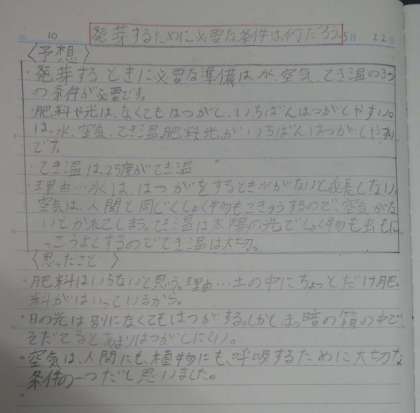 10 発芽するために必要な条件は何だろう 5 22日
〈予想〉
・発芽するときに必要な準備は水、空気、てき温の3つ
の条件が必要です。
・肥料や光は、なくてもはつがし、いちばんはつがしやすい
は、水、空気、てき温、肥料、光がいちばんはつがしやすい
です。
・てき温は、25度がてき温
・理由…水は、はつがをするとき水がないと成長しない。
空気は、人間と同じくしょく物もこきゅうするので、空気がな
いとかれてしまう。てき温は太陽の光でしょく物も
こうよくするのでてき温は大切。
〈思ったこと〉
・肥料はいらないと思う。理由…土の中にちょっとだけ肥
料がはいっているから。
・日の光は別になくてもはつがするしかしまっ暗の箱の中で、
そだてるとあまりはつがしにくい。
・空気は、人間にも、植物にも、呼吸するために大切な
条件の一つだと思いました。